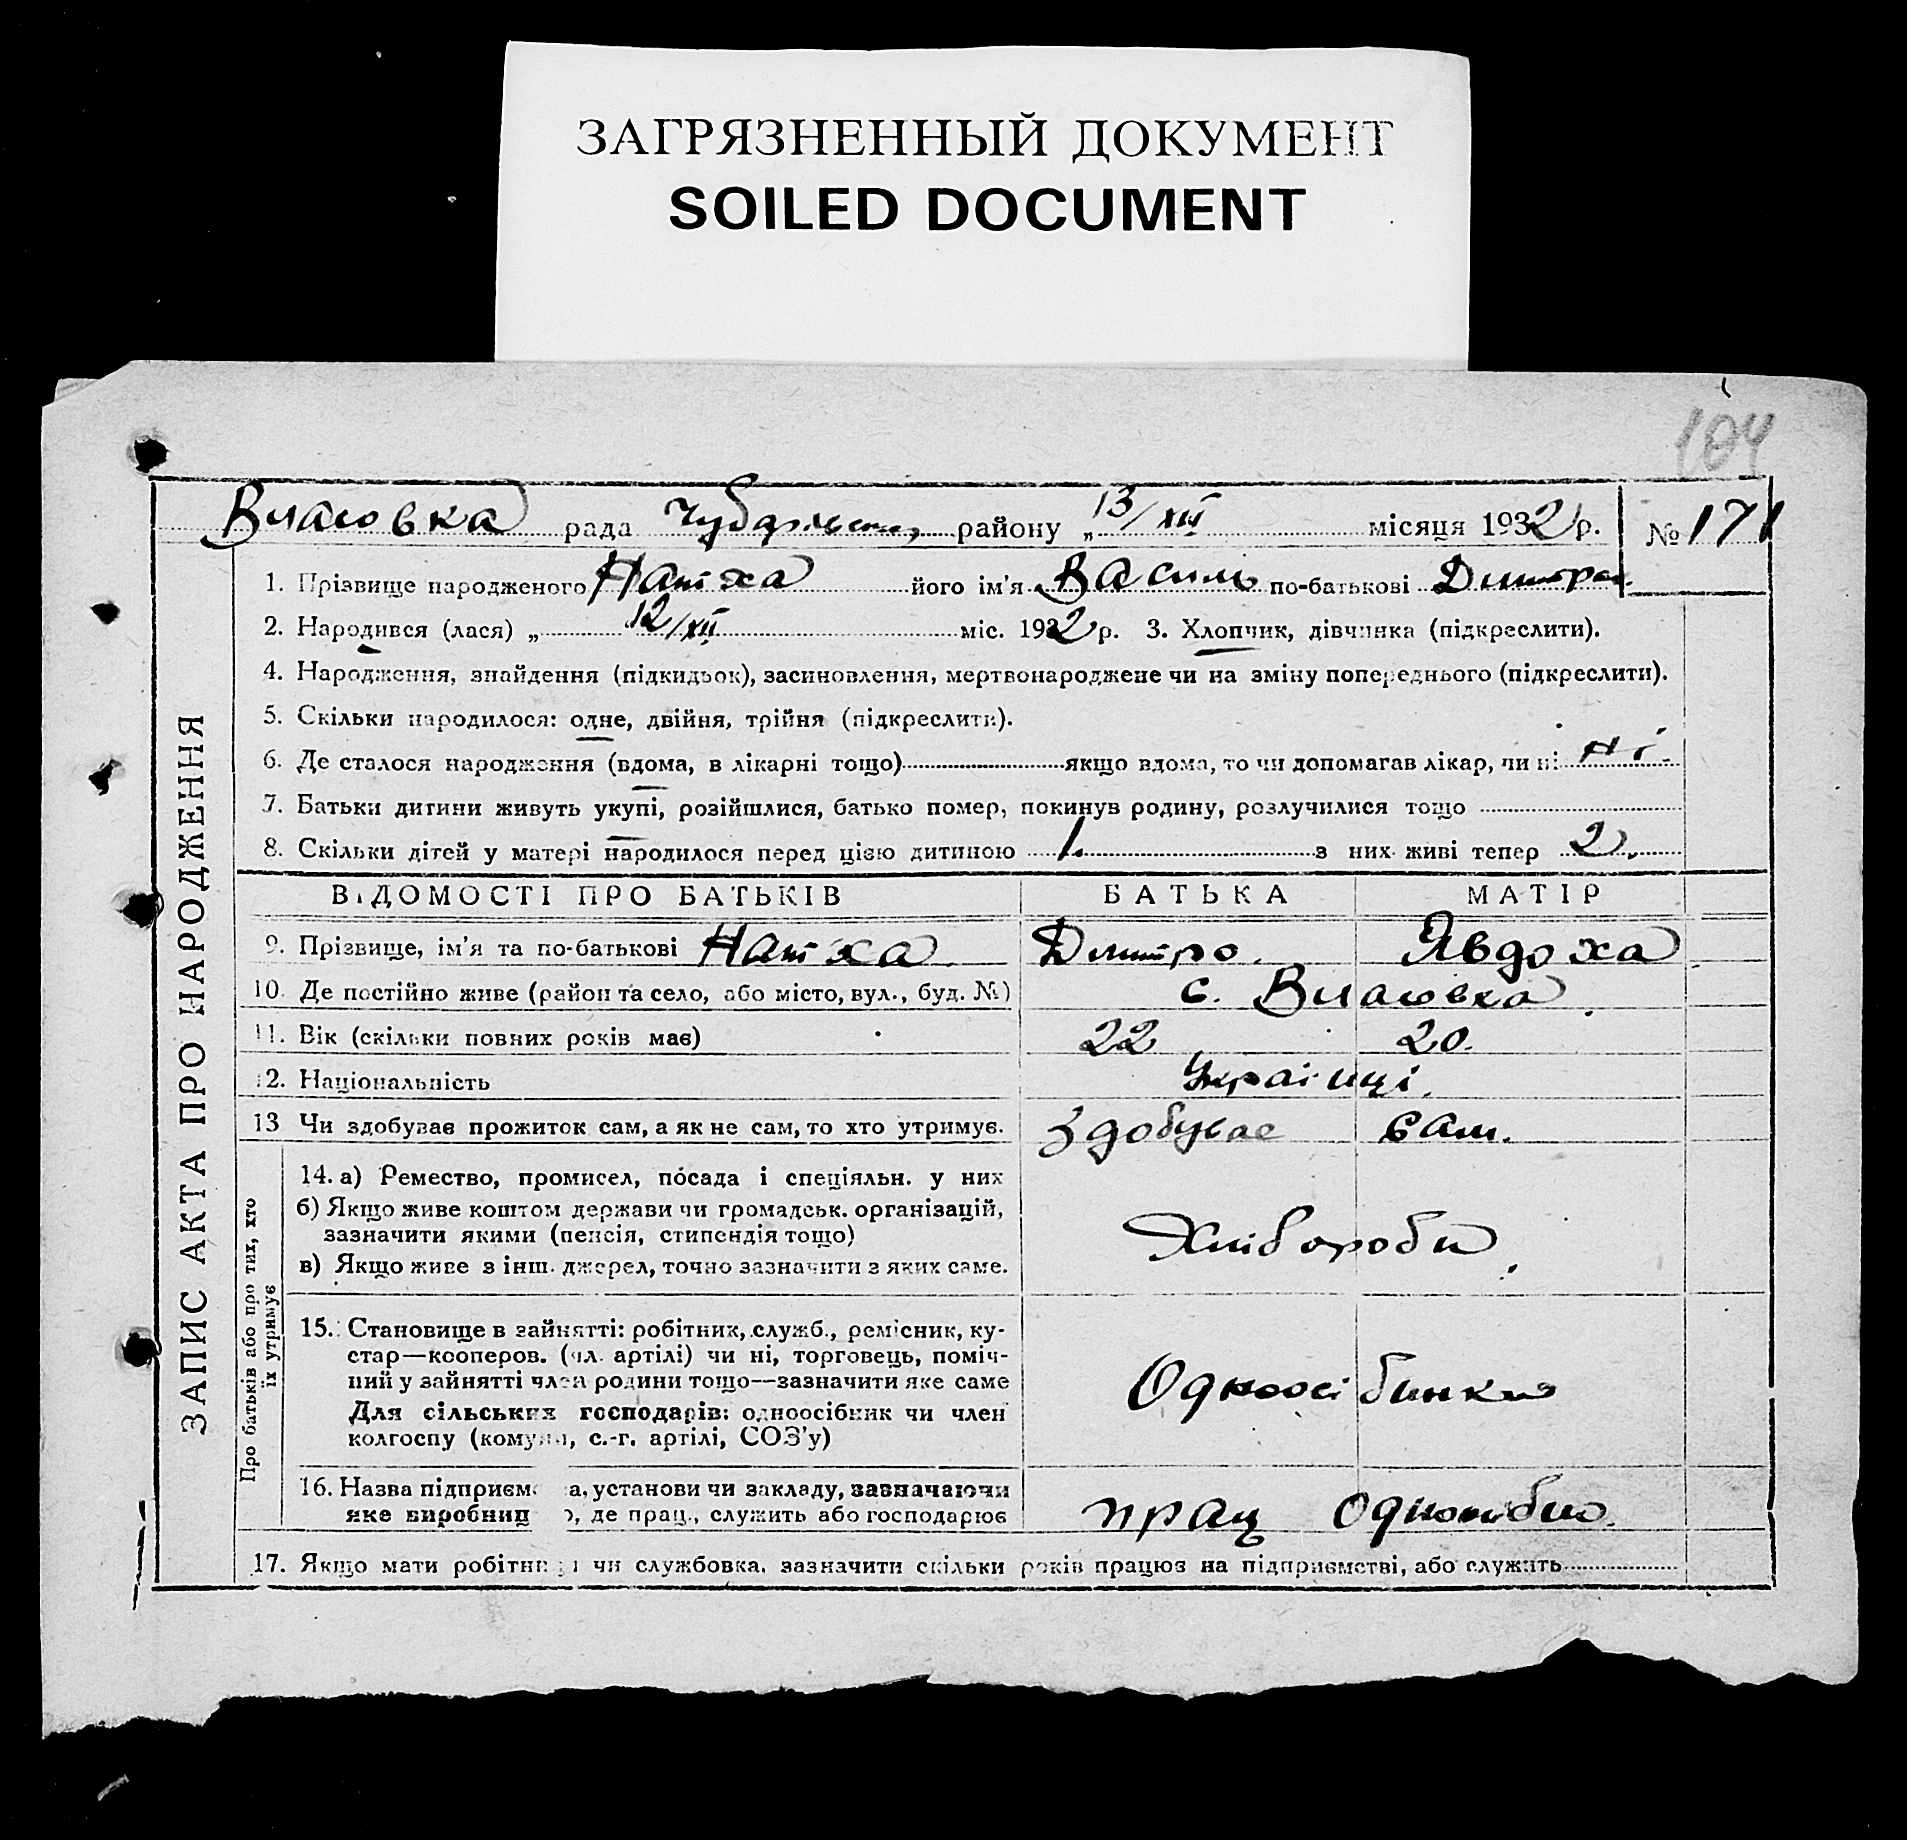 ЗАГРЯЗНЕННЫЙ ДОКУМЕНТ
SOILED DOCUMENT
104
Власовка рада району „13/XII місяця 1932 р. № 171
1. Прізвище народженого його ім'я Василь по-батькові Дмитров.
2. Народився (лася) „12/XII міс. 1932 р. 3. Хлопчик, дівчинка (підкреслити).
4. Народження, знайдення (підкидьок), засиновлення, мертвонароджене чи на зміну попереднього (підкреслити).
5. Скільки народилося: одне, двійня, трійня (підкреслити).
6. Де сталося народження (вдома, в лікарні тощо) якщо вдома, то чи допомагав лікар, чи ні: ні.
7. Батьки дитини живуть укупі, розійшлися, батько помер, покинув родину, розлучилися тощо
8. Скільки дітей у матері народилося перед цією дитиною 1. з них живі тепер 2.
ЗАПИС АКТА ПРО НАРОДЖЕННЯ
ВІДОМОСТІ ПРО БАТЬКІВ БАТЬКА МАТІР
9. Прізвище, ім'я та по-батькові Дмитро. Явдоха
10. Де постійно живе (район та село, або місто, вул., буд. №) с. Власовка
11. Вік (скільки повних років має) 22 20.
12. Національність Українці.
13 Чи здобуває прожиток сам, а як не сам, то хто утримує. здобуває сам.
Про батьків або про тих, хто
їх утримує
14. а) Ремество, промисел, посада і спеціяльн. у них
б) Якщо живе коштом держави чи громадськ. організацій,
зазначити якими (пенсія, стипендія тощо)
в) Якщо живе з інш. джерел, точно зазначити з яких саме.
Хлібороби.
15. Становище в зайнятті: робітник, служб., ремісник, ку-
стар—кооперов. (чл. артілі) чи ні, торговець, поміч-
ний у зайнятті член родини тощо—зазначити яке саме
Для сільських господарів: одноосібник чи член
колгоспу (комуни, с.-г. артілі, СОЗ'у)
Одноосібники
16. Назва підприєм а, установи чи закладу, зазначаючи
яке виробниц о, де прац., служить або господарює
прац
17. Якщо мати робітниця чи службовка, зазначити скільки років працює на підприємстві, або служить